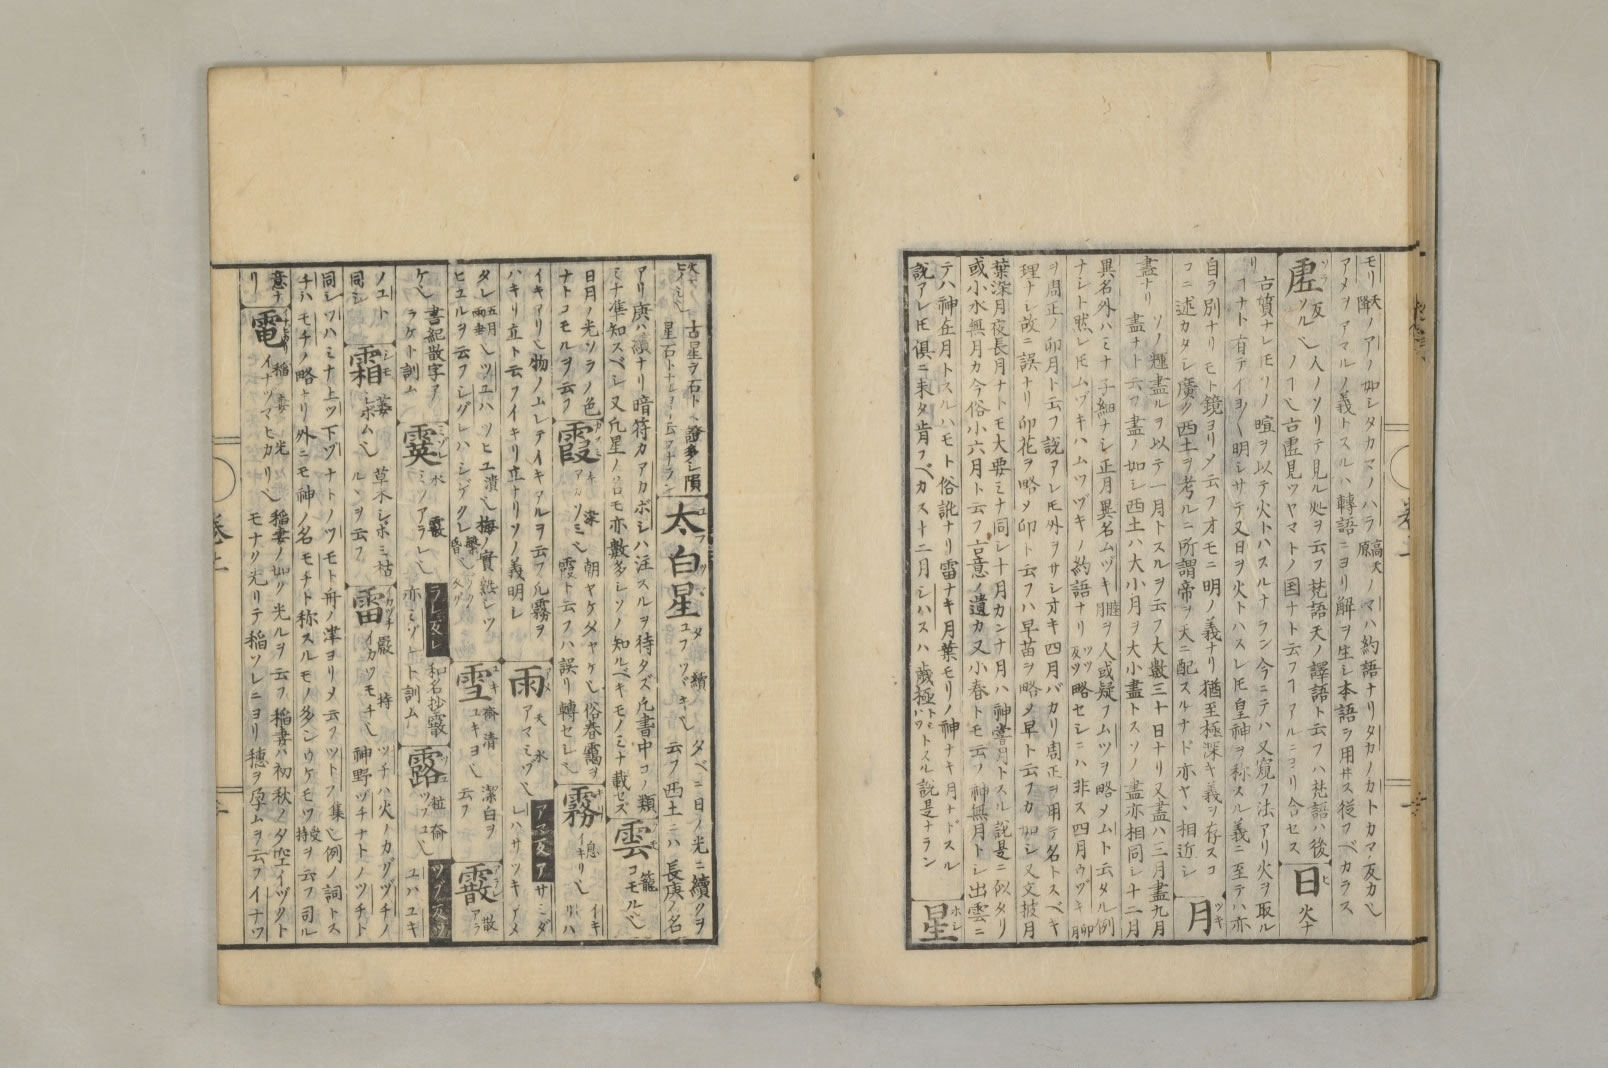 モリ天ノアノ如シタカマノハラ高天原ノマハ約語ナリタカノカトカマノ反カ也
アメヲアマルノ義トスルハ轉語ニヨリ解ヲ生シ本語ヲ用井ス從フベカラス
虚 ソラ 反ソル也 人ノソリテ見ル処ヲ云フ梵語天ノ譯語ト云フハ梵語ハ後
ノヿ也古書見ツヤマトノ国ナト云フヿアルニヨリ合セス 日 ヒ 火ナ
リ 古質ナレモソノ暄ヲ以テ火トハスルナラン今ニテハ又窺フ法アリ火ヲ取ル
ヿナト有テイヨ〱明シサテ又日ヲ火トハスレ𪜈皇神ヲ称スル義ニ至テハ亦
自ラ別ナリモト鏡ヨリメ云フオモニ明ノ義ナリ猶至極深キ義ヲ存スコ
コニ述カタシ廣ク西土ヲ考ルニ所謂帝ヲ天ニ配スルナド亦ヤヽ相近シ 月 ツキ
盡ナリ ソノ輝盡ルヲ以テ一月トスルヲ云フ大數三十日ナリ又盡ハ三月盡九月
盡ナト云フ盡ノ如シ西土ハ大小月ヲ大小盡トスソノ盡亦相同シ十二月
異名外ハミナ子細ナシ正月異名ムツキ月睦ヲ人或疑フムツヲ略メムト云タル例
ナシト然レ𪜈ムヅキハムツヅキノ約語ナリツツ反ツ略セシニハ非ス四月ウヅキ卯月
ヲ周正ノ卯月ト云フ説アレ𪜈外ヲサシオキ四月バカリ周正ヲ用テ名トスベキ
理ナシ故ニ誤ナリ卯花ヲ略メ卯ト云フハ早苗ヲ略メ早ト云フカ如シ又文披月
葉深月夜長月ナト𪜈大要ミナ同シ十月カンナ月ハ神嘗月トスル説是ニ似タリ
或小水無月カ今俗小六月ト云フ古意ノ遺カ又小春ト𪜈云フ神無月トシ出雲ニ
テハ神在月トスルハ𪜈ト俗訛ナリ雷ナキ月葉モリノ神ナキ月ナドスル
説アレ𪜈俱ニ未タ肯フベカス十二月シハスハ歲極ハツトトスル説是ナラン 星 ホシ
古星ヲ石ト 證多シ隕
星石トナレ云フナラン 太白星 ユフツヾ 夕續 ユフツヾキ也 タベニ日ノ光ニ續クヲ云フ西土ニハ長庚ノ名
アリ庚ハ續ナリ暗符カアカボシハ注スルヲ待タズ凡書中コノ類
ミナ準知スベシ又凡星ノ名モ亦數多シソノ知ルベキモノミナ載セス 雲 クモ 籠 コモル也
日月ノ光ソラノ色
ナトコモルヲ云フ 霞 カスミ 朝ヤケタヤケ也俗春靄ヲ
霞ト云フハ誤リ轉セレ也 霧 キリ 息 イキリ也 イキリハ
イキアリ也物ノムレテイキタルヲ云フ凡霧ヲ
ハキリ立ト云フイキリ立ナリソノ義明シ 雨 アメ 天水 アマミヅ也 アマ反ア サミダレハサツキアメ
タレ五月雨垂也ツユハツヒユ潰也梅ノ實熟シツ
ヒユルヲ云フシグレハシゲクレ繁昏也 雪 ユキ 齋清 ユキヨ也 潔白ヲ云フ 霰 アラレ 散 アラ
ケ也 書紀散字アラケト訓ム 霙 ミゾレ 水霰 ミゾアラレ也 ラレ反レ 和名抄霰
亦ミゾレト訓ム 露 ツユ 粒齋 ツブユ也 ツブ反ツ ユハユキ
ノユト
同シ 霜 シモ 萎 シボム也 草木シボミ枯ルヽヲ云フ 雷 イカヅチ 嚴持 イカツモチ也 ツチハ火ノカグヅチノ
同シツハミナ上ツ下ヅナトノツモト舟ノ津ヨリメ云フツトフ集也例ノ詞トス
チハモチノ略ナリ外ニモ神ノ名モチト称スルモノ多シウケモツ受持ヲ云フ司ル
意ナリ 電 イナツマ 稲妻光 イナツマヒカリ也 稲妻ノ如ク光ルヲ云フ稲妻ハ初秋ノタ空イヅクト
モナク先リテ稲ソレニヨリ穂ヲ孕ムヲ云フイナツ